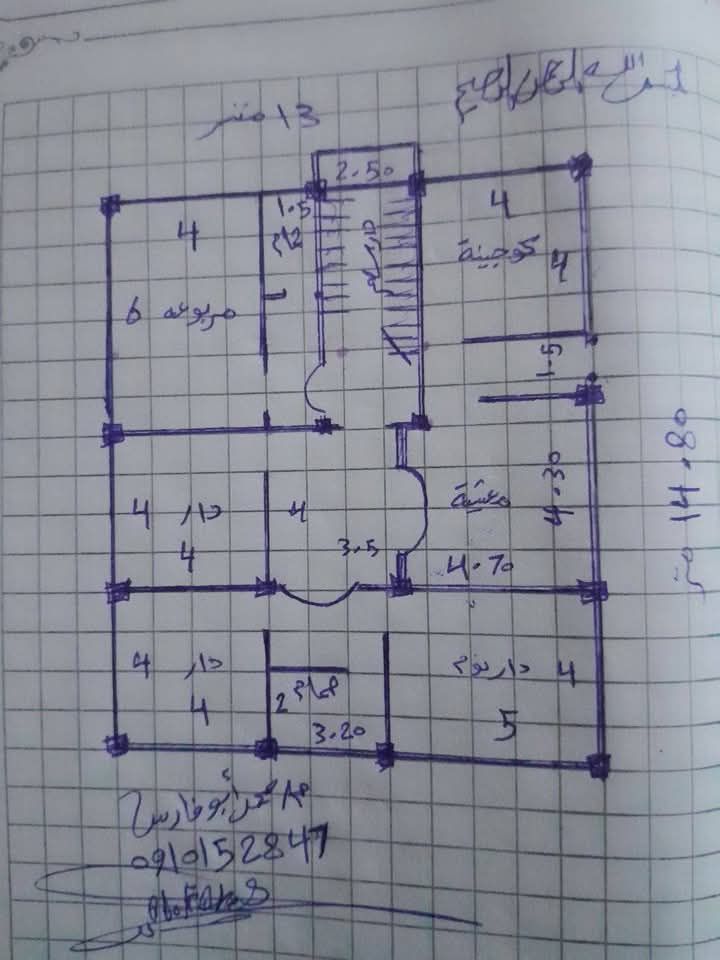 13 متر
2.50
4
1.5
حمام
4
كوجينة
4
6 مربوعه
1.5
14.80 متر
4 دار
4
4
3.5
معيشة
4.30
4.70
4 دار
4
حمام
2
3.20
دار نوم 4
5
0910152847